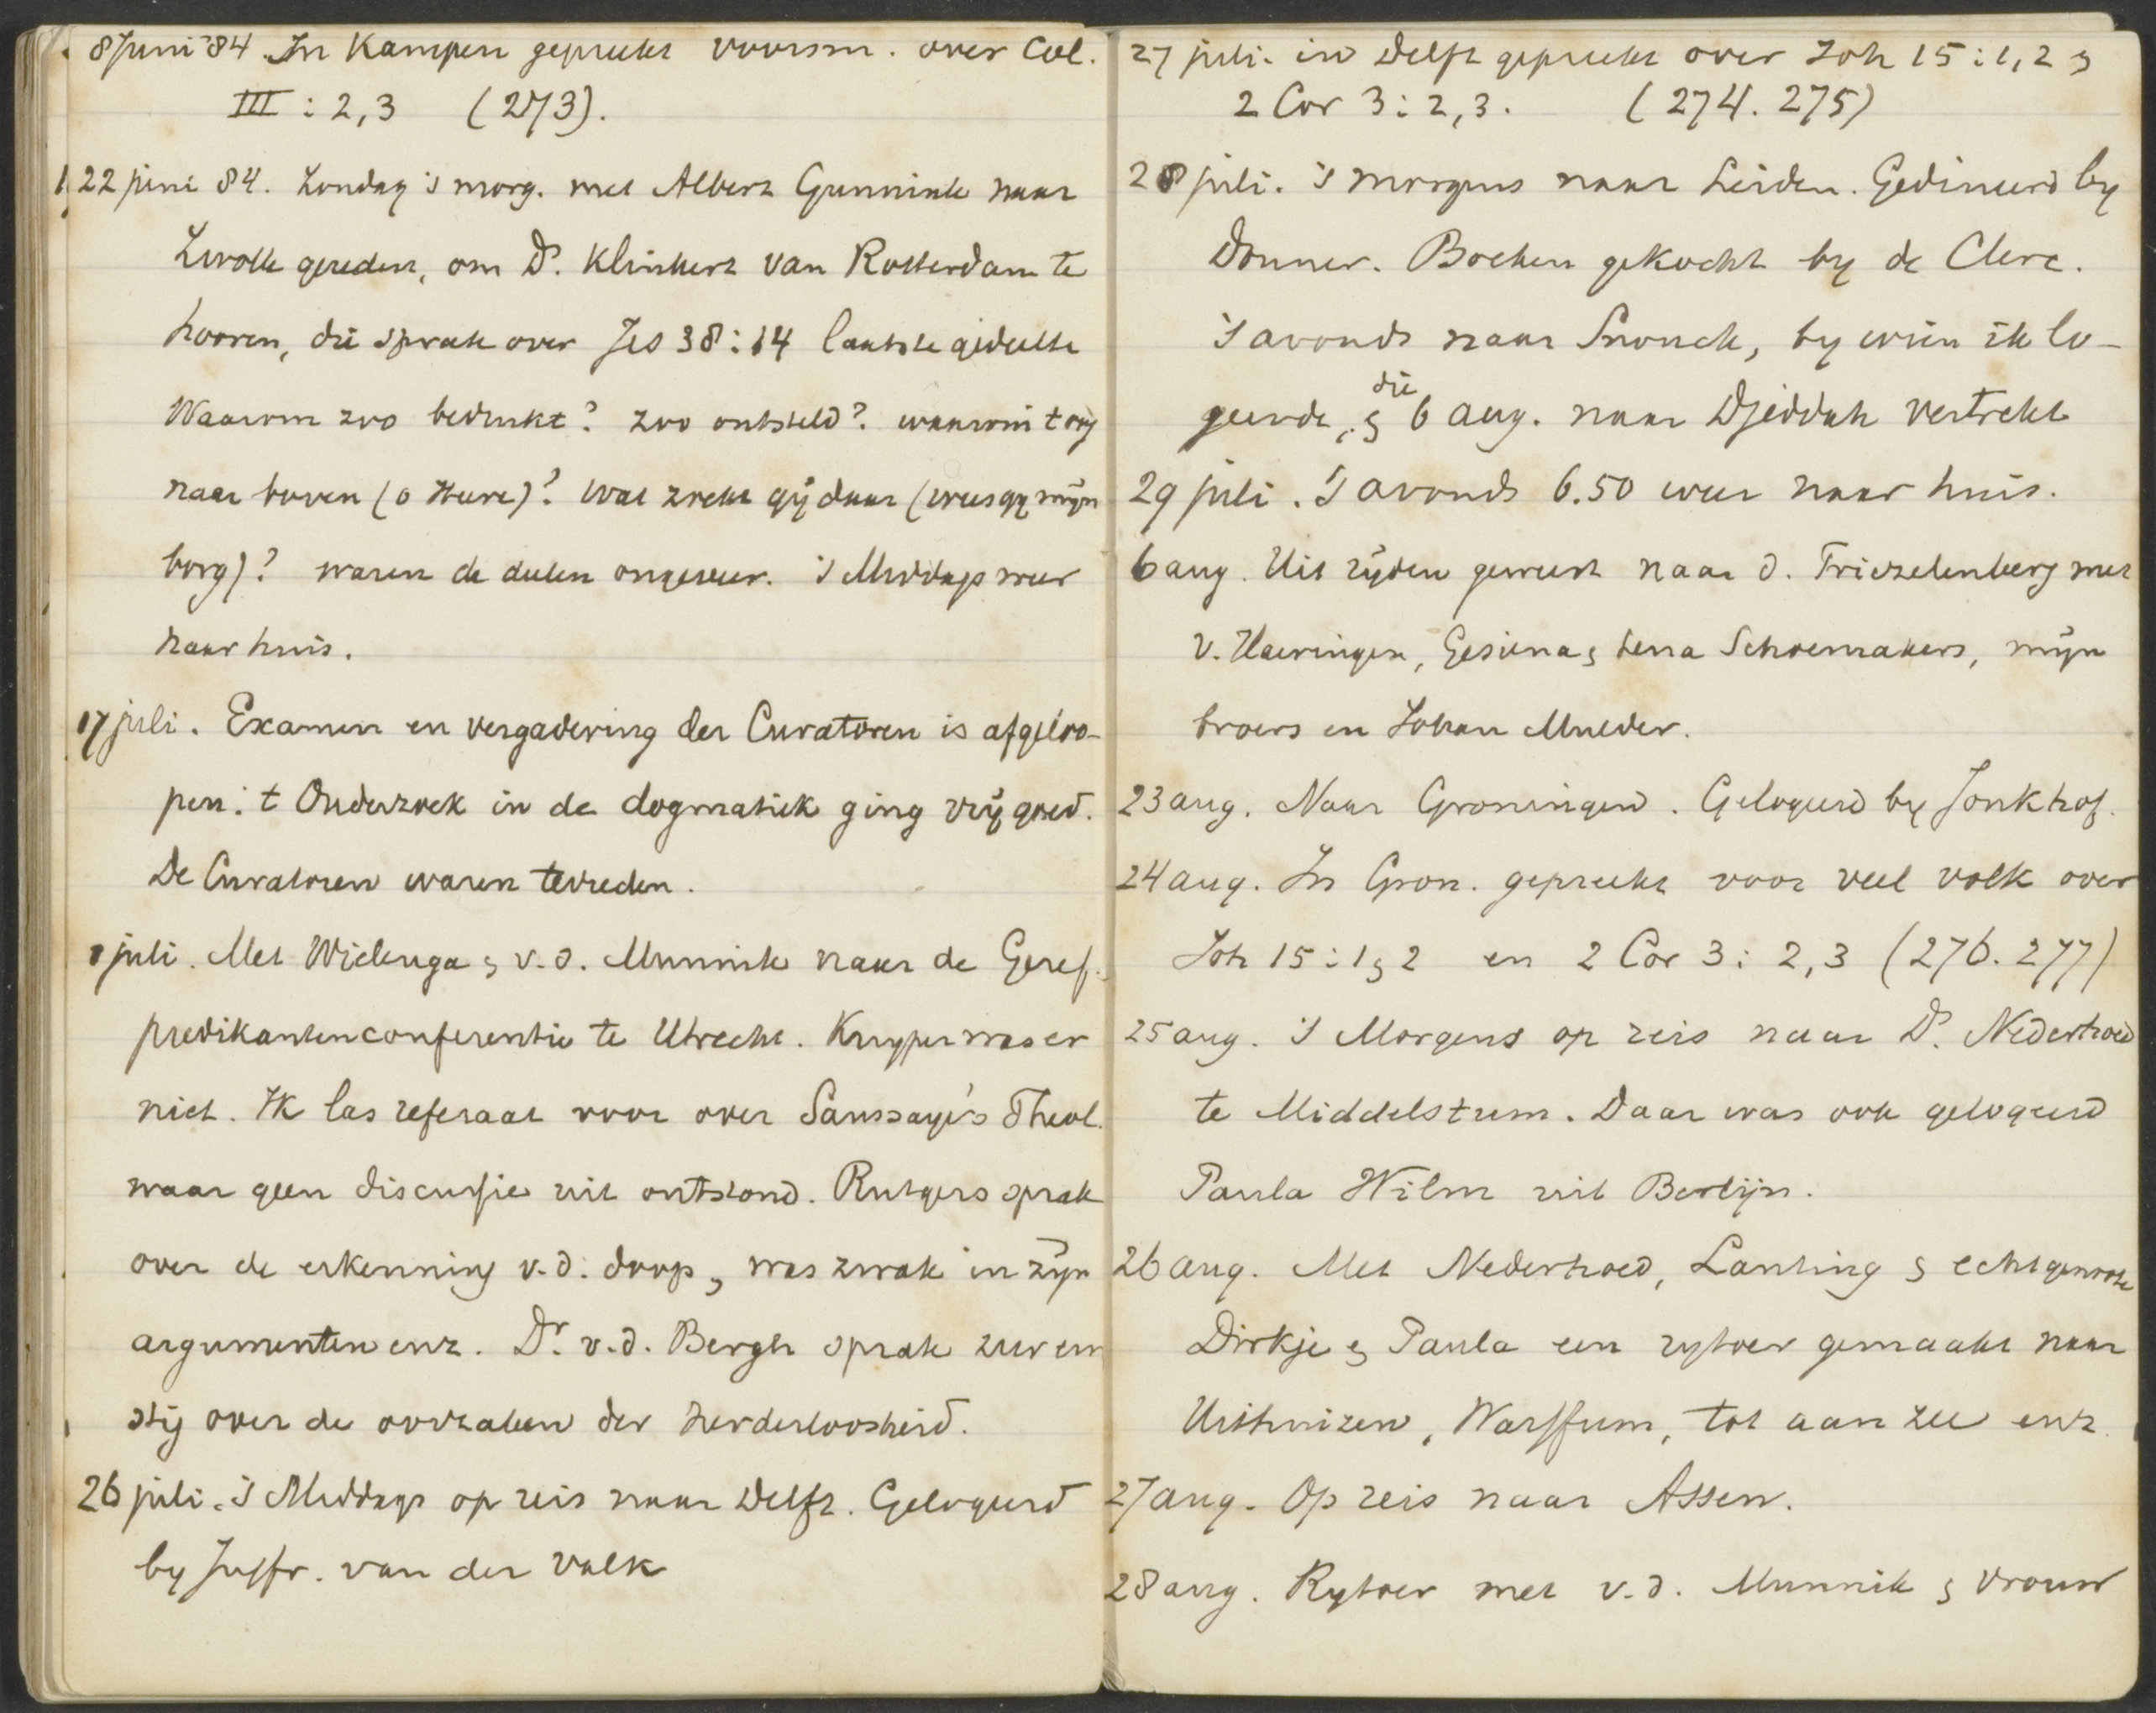 8 Juni '84. In Kampen gepreekt voorm. over Col.
III : 2,3 (273).
22 juni 84. Zondag 's morg. met Albert Gunnink naar
Zwolle gereden, om Ds. Klinkert van Rotterdam te
hooren, die sprak over Jes 38:14 laatste gedeelte
Waarom zoo bedrukt? zoo ontsteld? waarom t oog
naar boven (o Heere)? Wat zoekt gij daar (wees gy mijn
borg)? waren de deelen ongeveer. 's Middags weer
naar huis.
17 juli. Examen en vergadering der Curatoren is afgeloo-
pen. t Onderzoek in de dogmatiek ging vrij goed.
De Curatoren waren tevreden.
juli. Met Wielenga & v.d. Munnik naar de Geref.
predikantenconferentie te Utrecht. Kuyper was er
niet. Ik las referaat voor over Saussaye's Theol.
waar geen discussie uit ontstond. Rutgers sprak
over de erkenning v.d. doop, was zwak in zijn
argumenten enz. Dr. v.d. Bergh sprak zeer ern
stig over de oorzaken der herderloosheid.
26 juli. 's Middags op reis naar Delft. Gelogeerd
by Juffr. van der Valk
27 juli. in Delft gepreekt over Joh 15:1,2 &
2 Cor 3:2,3. (274. 275)
28 juli. 's morgens naar Leiden. Gedineerd by
Donner. Boeken gekocht by de Clerc.
's avonds naar Snouck, by wien ik lo-
geerde, & die 6 aug. naar Djeddah vertrekt
29 juli. 's avonds 6.50 weer naar huis.
6 aug. Uit rijden geweest naar d. Triezelenberg met
v. Haeringen, Gesiena & Lena Schoemakers, mijn
broers en Johan Mulder.
23 aug. Naar Groningen. Gelogeerd by Jonkhof.
24 aug. In Gron. gepreekt voor veel volk over
Joh 15:1 & 2 en 2 Cor 3:2,3 (276. 277)
25 aug. 's Morgens op reis naar Ds. Nederhoed
te Middelstum. Daar was ook gelogeerd
Paula Wilm uit Berlijn.
26 aug. Met Nederhoed, Lanting & echtgenoote
Dirkje & Paula een rytoer gemaakt naar
Uithuizen, Warffum, tot aan zee enz.
27 aug. Op reis naar Assen.
28 aug. Rytoer met v.d. Munnik & vrouw